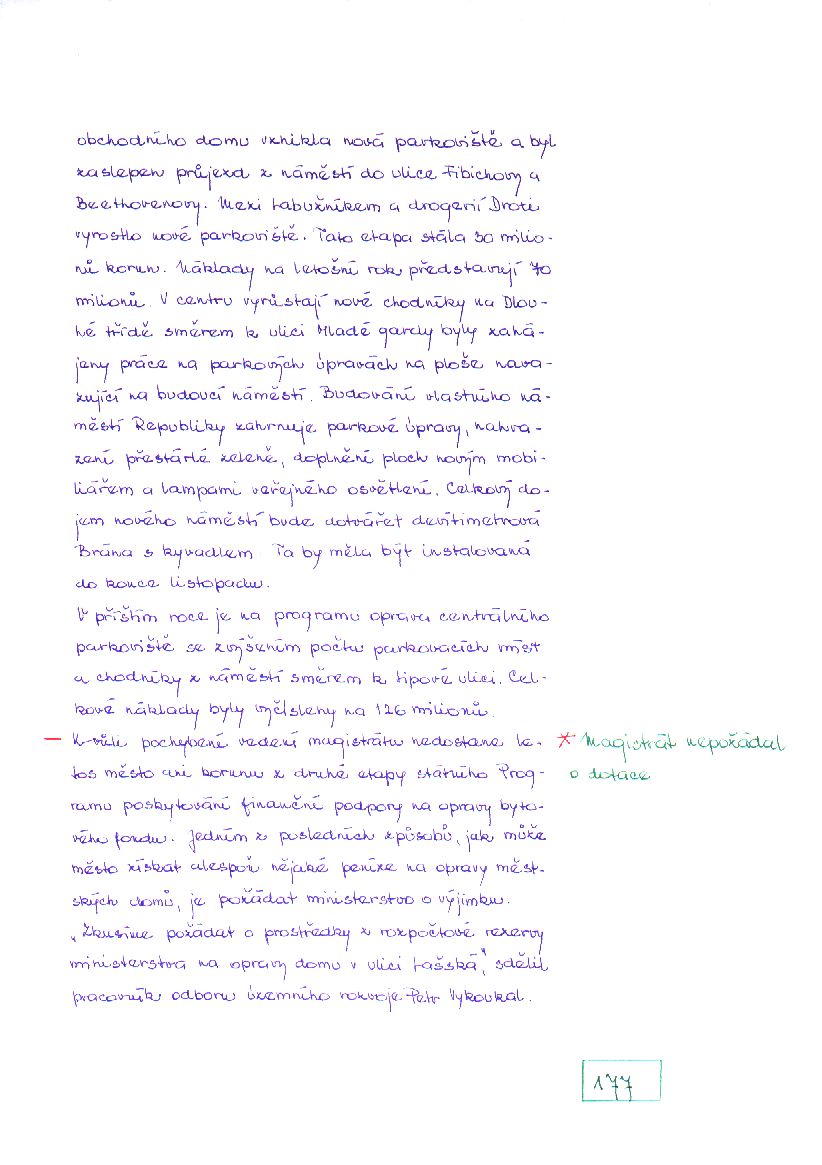 obchodního domu vznikla nová parkoviště a byl
zaslepen průjezd z náměstí do ulice Fibichovy a
Beethovenovy. Mezi Labužníkem a drogerií Droti
vyrostlo nové parkoviště. Tato etapa stála 30 milio-
nů korun. Náklady na letošní rok představují 70
milionů. V centru vyrůstají nové chodníky na Dlou-
hé třídě směrem k ulici Mladé gardy byly zahá-
jeny práce na parkových úpravách na ploše nava-
zující na budoucí náměstí. Budování vlastního ná-
městí Republiky zahrnuje parkové úpravy, nahra-
zení přestárlé zeleně, doplnění ploch novým mobi-
liářem a lampami veřejného osvětlení. Celkový do-
jem nového náměstí bude dotvářet devítimetrová
Brána s kyvadlem. Ta by měla být instalovaná
do konce listopadu.
V příštím roce je na programu oprava centrálního
parkoviště se zvýšením počtu parkovacích míst
a chodníky z náměstí směrem k Lipové ulici. Cel-
kové náklady byly vyčísleny na 126 milionů.
— Kvůli pochybení vedení magistrátu nedostane le-
tos město ani korunu z druhé etapy státního Prog-
ramu poskytování finanční podpory na opravy byto-
vého fondu. Jedním z posledních způsobů, jak může
město získat alespoň nějaké peníze na opravy měst-
ských domů, je požádat ministerstvo o výjimku.
„Zkusíme požádat o prostředky z rozpočtové rezervy
ministerstva na opravy domu v ulici Lašská", sdělil
pracovník odboru územního rozvoje Petr Vykoukal.
* Magistrát nepožádal
o dotace
177